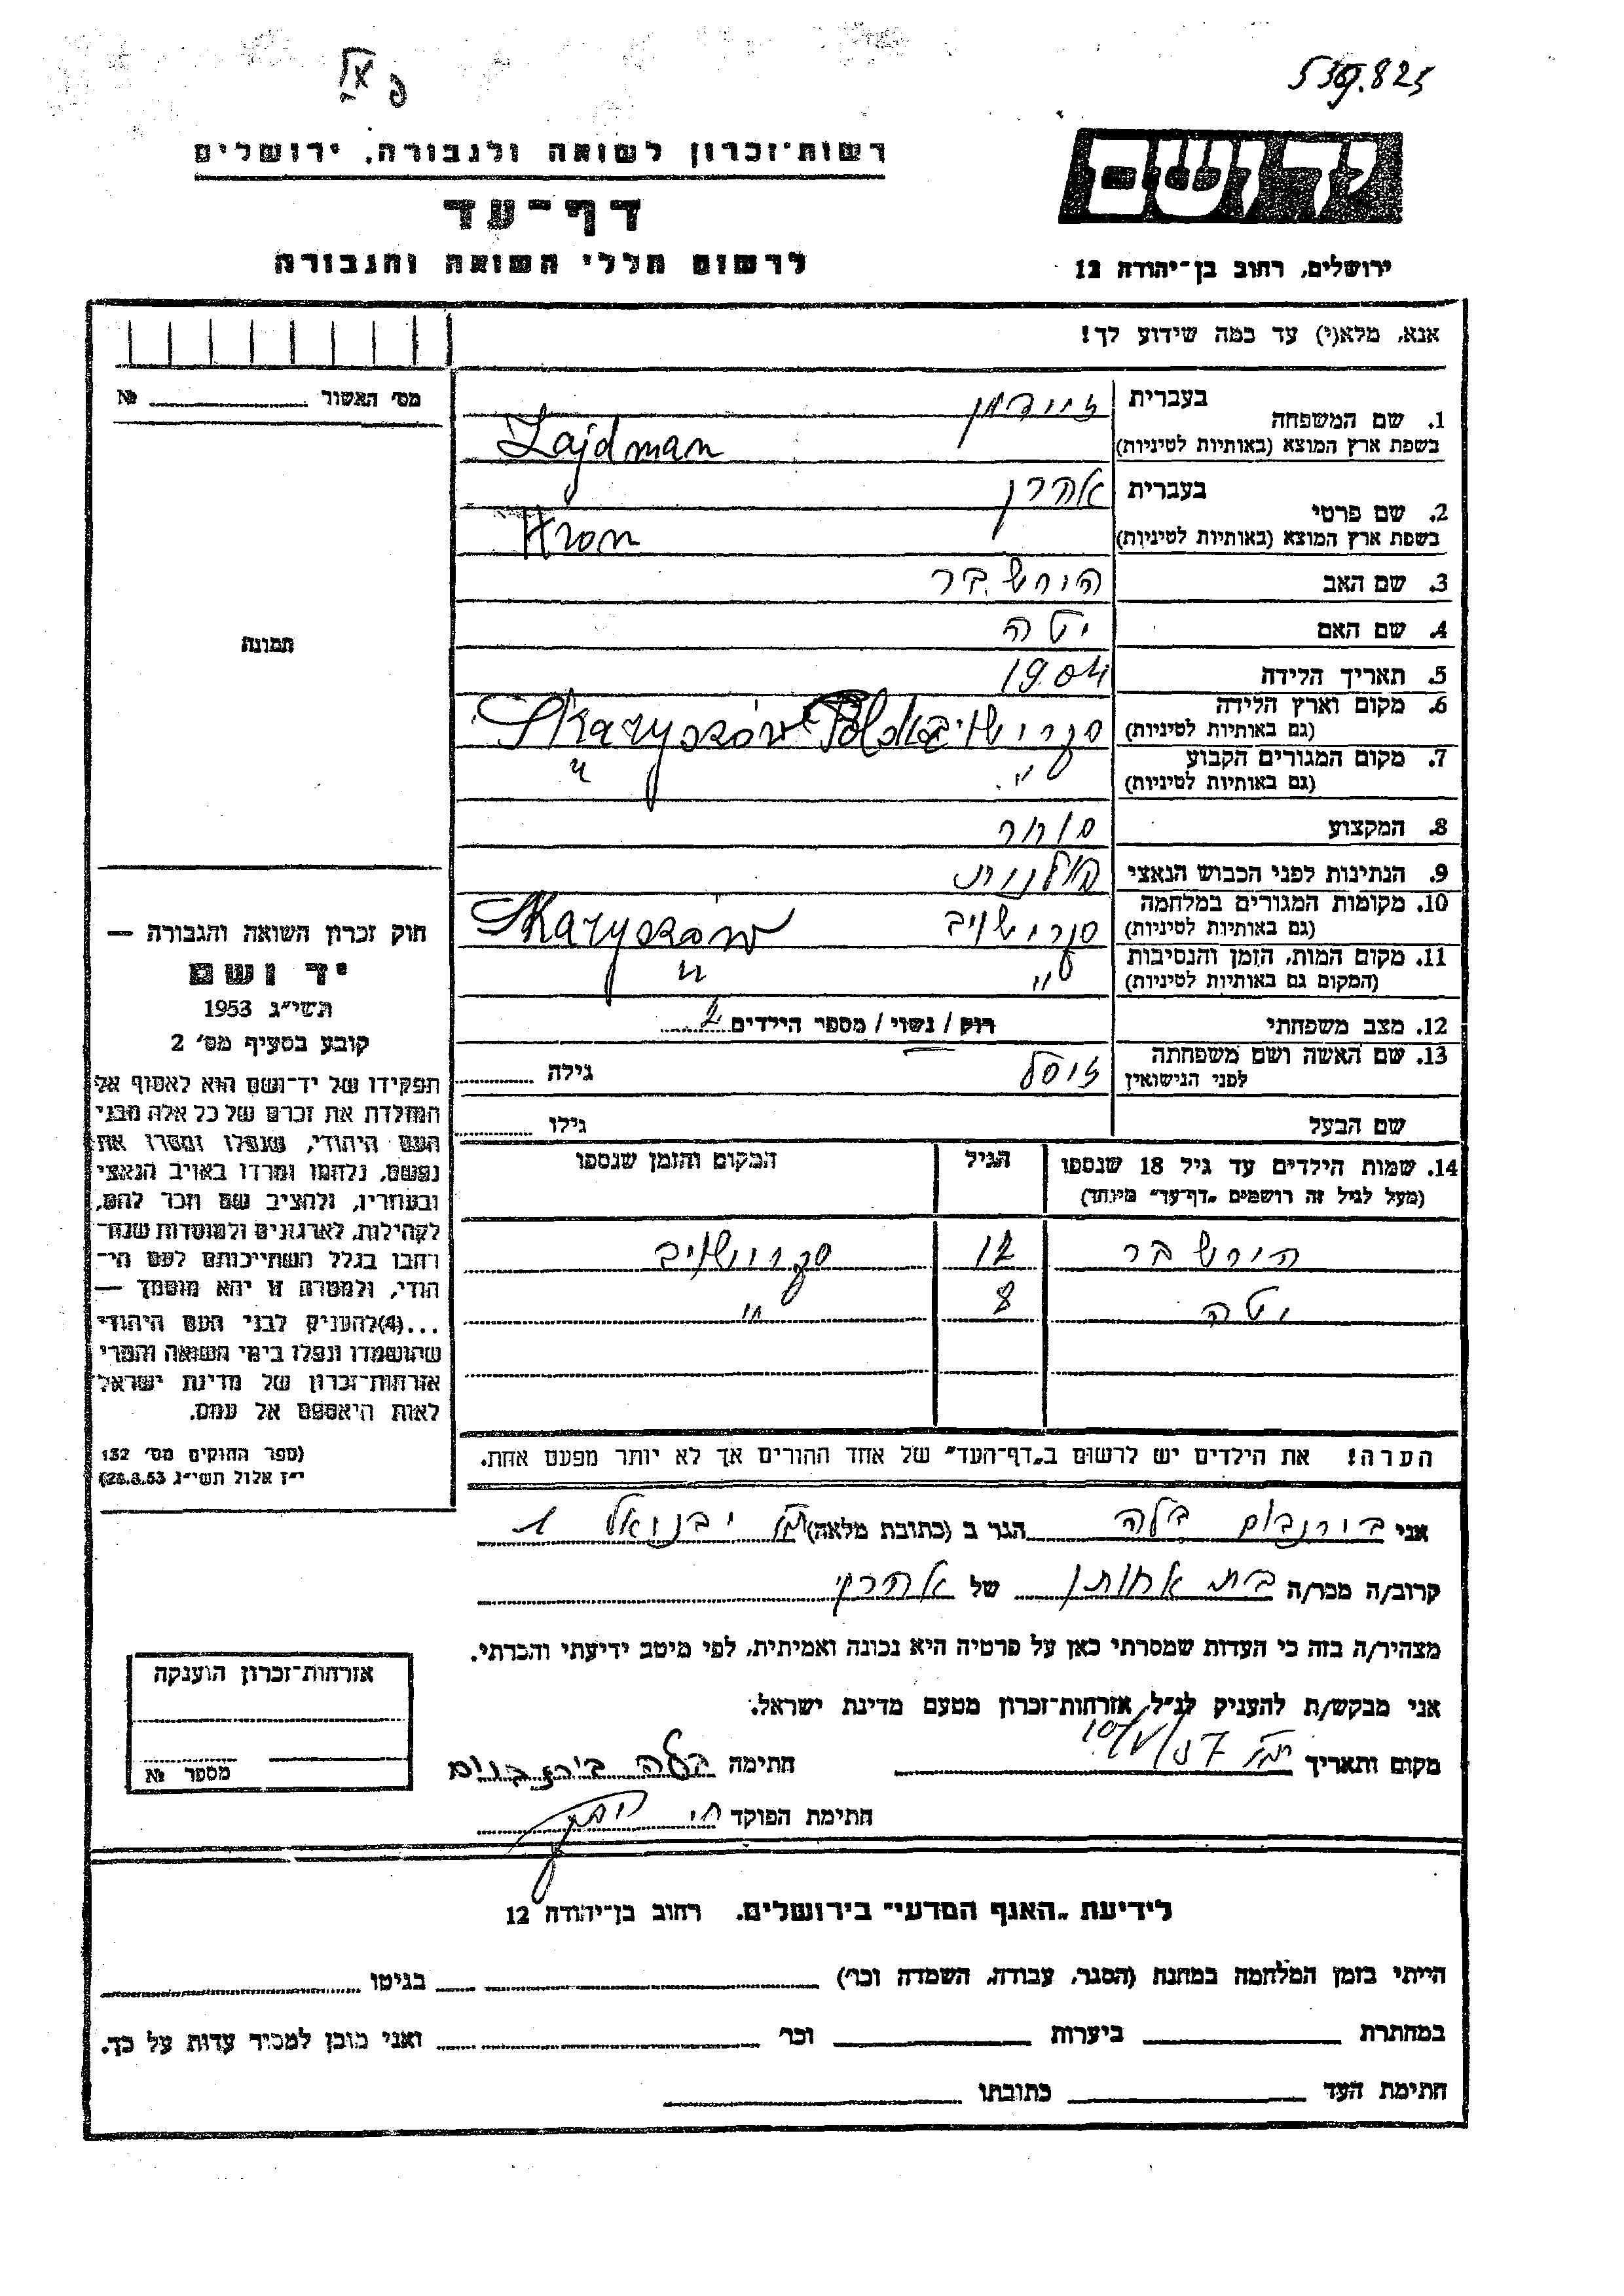 539.825
רשות־זכרון לשואה ולגבורה, ירושלים
יד ושם
דף־עד
לרשום חללי השואה והגבורה
ירושלים, רחוב בן־יהודה 12
אנא, מלא(י) עד כמה שידוע לך!
מס׳ האשור № 
1. שם המשפחה בעברית זיידמן
בשפת ארץ המוצא (באותיות לטיניות) Zajdman
2. שם פרטי בעברית אהרן
בשפת ארץ המוצא (באותיות לטיניות) Aron
3. שם האב הירש בר
4. שם האם יטה
5. תאריך הלידה 1904
6. מקום וארץ הלידה
(גם באותיות לטיניות) סקרישויב Skaryszów
7. מקום המגורים הקבוע
(גם באותיות לטיניות) " "
8. המקצוע סוחר
9. הנתינות לפני הכבוש הנאצי פולנית
10. מקומות המגורים במלחמה
(גם באותיות לטיניות) סקרישויב Skaryszów
11. מקום המות, הזמן והנסיבות
(המקום גם באותיות לטיניות) " "
12. מצב משפחתי רוק / נשוי / מספר הילדים 2
13. שם האשה ושם משפחתה
לפני הנישואין זיסל גילה
שם הבעל גילו
14. שמות הילדים עד גיל 18 שנספו הגיל המקום והזמן שנספו
(מעל לגיל זה רושמים „דף־עד” מיוחד)
הירש בר 12 סקרישויב
יטה 8 "
הערה! את הילדים יש לרשום ב„דף־העד” של אחד ההורים אך לא יותר מפעם אחת.
תמונה
חוק זכרון השואה והגבורה —
יד ושם
תשי״ג 1953
קובע בסעיף מס׳ 2
תפקידו של יד־ושם הוא לאסוף אל
המולדת את זכרם של כל אלה מבני
העם היהודי, שנפלו ומסרו את
נפשם, נלחמו ומרדו באויב הנאצי
ובעוזריו, ולהציב שם וזכר להם,
לקהילות, לארגונים ולמוסדות שנח־
רבו בגלל השתייכותם לעם הי־
הודי, ולמטרה זו יהא מוסמך —
...(4)להעניק לבני העם היהודי
שהושמדו ונפלו בימי השואה והמרי
אזרחות־זכרון של מדינת ישראל
לאות היאספם אל עמם.
(ספר החוקים מס׳ 132
י״ז אלול תשי״ג 28.8.53)
אני בירנבוים בלה הגר ב (כתובת מלאה) יבנאל 1
קרוב/ה מכר/ה בת אחותן של אהרן
מצהיר/ה בזה כי העדות שמסרתי כאן על פרטיה היא נכונה ואמיתית, לפי מיטב ידיעתי והכרתי.
אני מבקש/ת להעניק לנ״ל, אזרחות־זכרון מטעם מדינת ישראל.
מקום ותאריך 10/V/57 חתימה בלה בירנבוים
חתימת הפוקד
אזרחות־זכרון הוענקה
מספר №
לידיעת „האגף המדעי” בירושלים. רחוב בן־יהודה 12
הייתי בזמן המלחמה במחנה (הסגר, עבודה, השמדה וכר׳) בגיטו
במחתרת ביערות וכר׳ ואני מוכן למסיר עדות על כך.
חתימת העד כתובתו